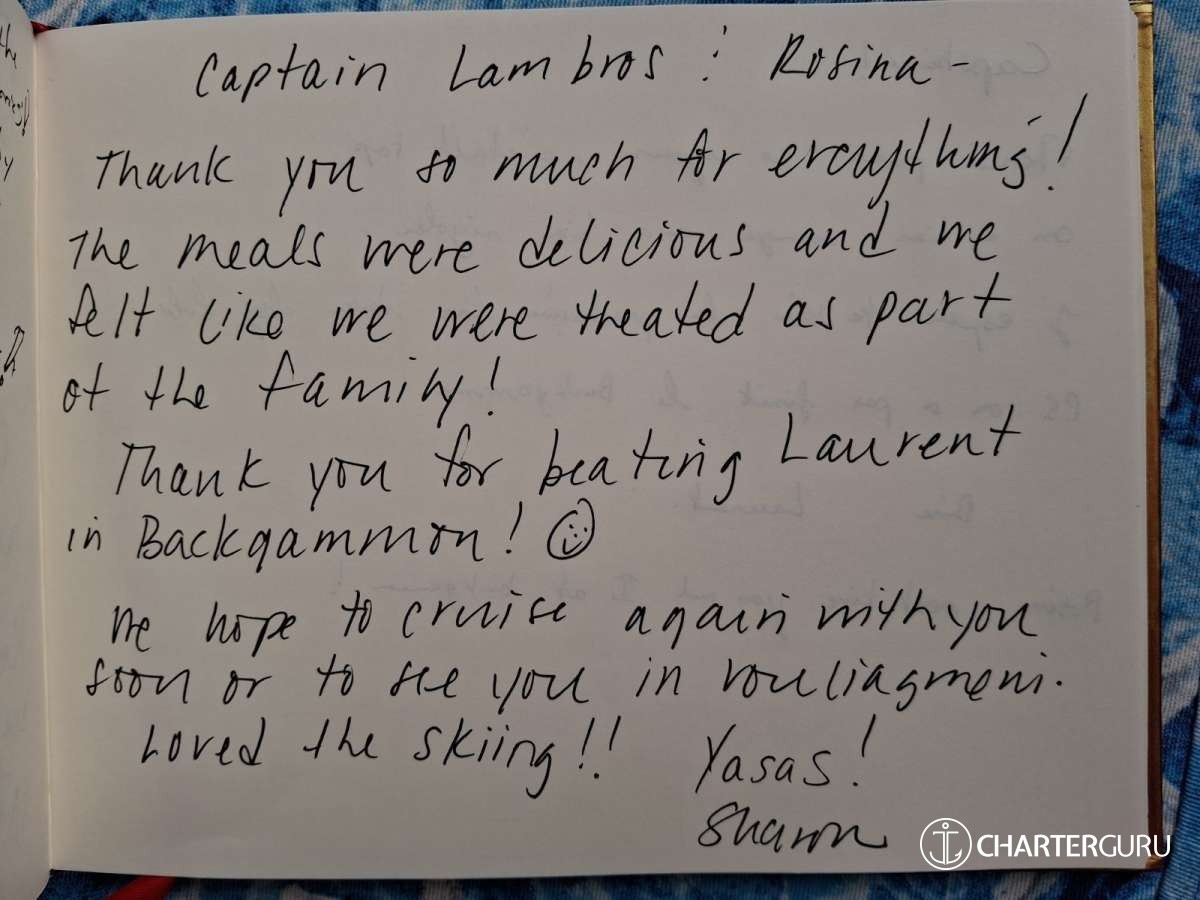 Captain Lambros : Rosina -
Thank you so much for everything!
The meals were delicious and we
felt like we were theated as part
of the family!
Thank you for beating Laurent
in Backgammon! ☺
We hope to cruise again with you
soon or to see you in vouliagmeni.
Loved the skiing!! Yasas!
Sharon
CHARTERGURU